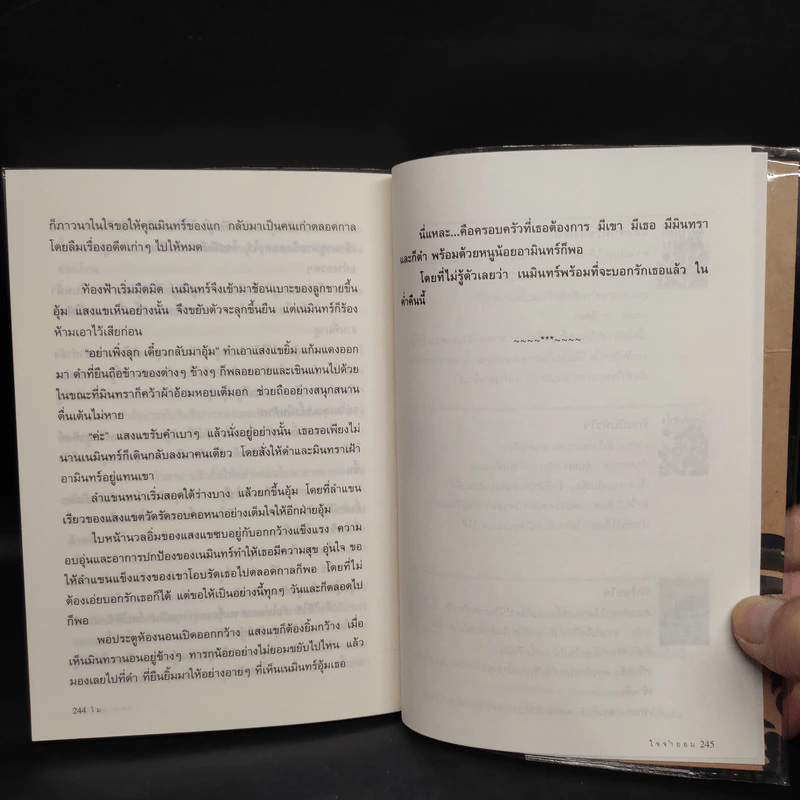 ก็ภาวนาในใจขอให้คุณมินทร์ของแก กลับมาเป็นคนเก่าตลอดกาล
โดยลืมเรื่องอดีตเก่าๆ ไปให้หมด
ท้องฟ้าเริ่มมืดมิด เนมินทร์จึงเข้ามาช้อนเบาะของลูกชายขึ้น
อุ้ม แสงแขเห็นอย่างนั้น จึงขยับตัวจะลุกขึ้นยืน แต่เนมินทร์ก็ร้อง
ห้ามเอาไว้เสียก่อน
“อย่าเพิ่งลุก เดี๋ยวกลับมาอุ้ม” ทำเอาแสงแขยิ้ม แก้มแดงออก
มา ดำที่ยืนถือข้าวของต่างๆ ข้างๆ ก็พลอยอายและเขินแทนไปด้วย
ในขณะที่มินทราก็คว้าผ้าอ้อมหอบเต็มอก ช่วยถืออย่างสนุกสนาน
ตื่นเต้นไม่หาย
“ค่ะ” แสงแขรับคำเบาๆ แล้วนั่งอยู่อย่างนั้น เธอรอเพียงไม่
นานเนมินทร์ก็เดินกลับลงมาคนเดียว โดยสั่งให้ดำและมินทราเฝ้า
อามินทร์อยู่แทนเขา
ลำแขนหนาเริ่มสอดใต้ร่างบาง แล้วยกขึ้นอุ้ม โดยที่ลำแขน
เรียวของแสงแขตวัดรัดรอบคอหนาอย่างเต็มใจให้อีกฝ่ายอุ้ม
ใบหน้านวลอิ่มของแสงแขซบอยู่กับอกกว้างแข็งแรง ความ
อบอุ่นและอาการปกป้องของเนมินทร์ทำให้เธอมีความสุข อุ่นใจ ขอ
ให้ลำแขนแข็งแรงของเขาโอบรัดเธอไปตลอดกาลก็พอ โดยที่ไม่
ต้องเอ่ยบอกรักเธอก็ได้ แต่ขอให้เป็นอย่างนี้ทุกๆ วันและก็ตลอดไป
ก็พอ
พอประตูห้องนอนเปิดออกกว้าง แสงแขก็ต้องยิ้มกว้าง เมื่อ
เห็นมินทรานอนอยู่ข้างๆ ทารกน้อยอย่างไม่ยอมขยับไปไหน แล้ว
มองเลยไปที่ดำ ที่ยืนยิ้มมาให้อย่างอายๆ ที่เห็นเนมินทร์อุ้มเธอ
244
นี่แหละ...คือครอบครัวที่เธอต้องการ มีเขา มีเธอ มีมินทรา
และก็ดำ พร้อมด้วยหนูน้อยอามินทร์ก็พอ
โดยที่ไม่รู้ตัวเลยว่า เนมินทร์พร้อมที่จะบอกรักเธอแล้ว ใน
ค่ำคืนนี้
~~~~***~~~~
ใจจำยอม 245